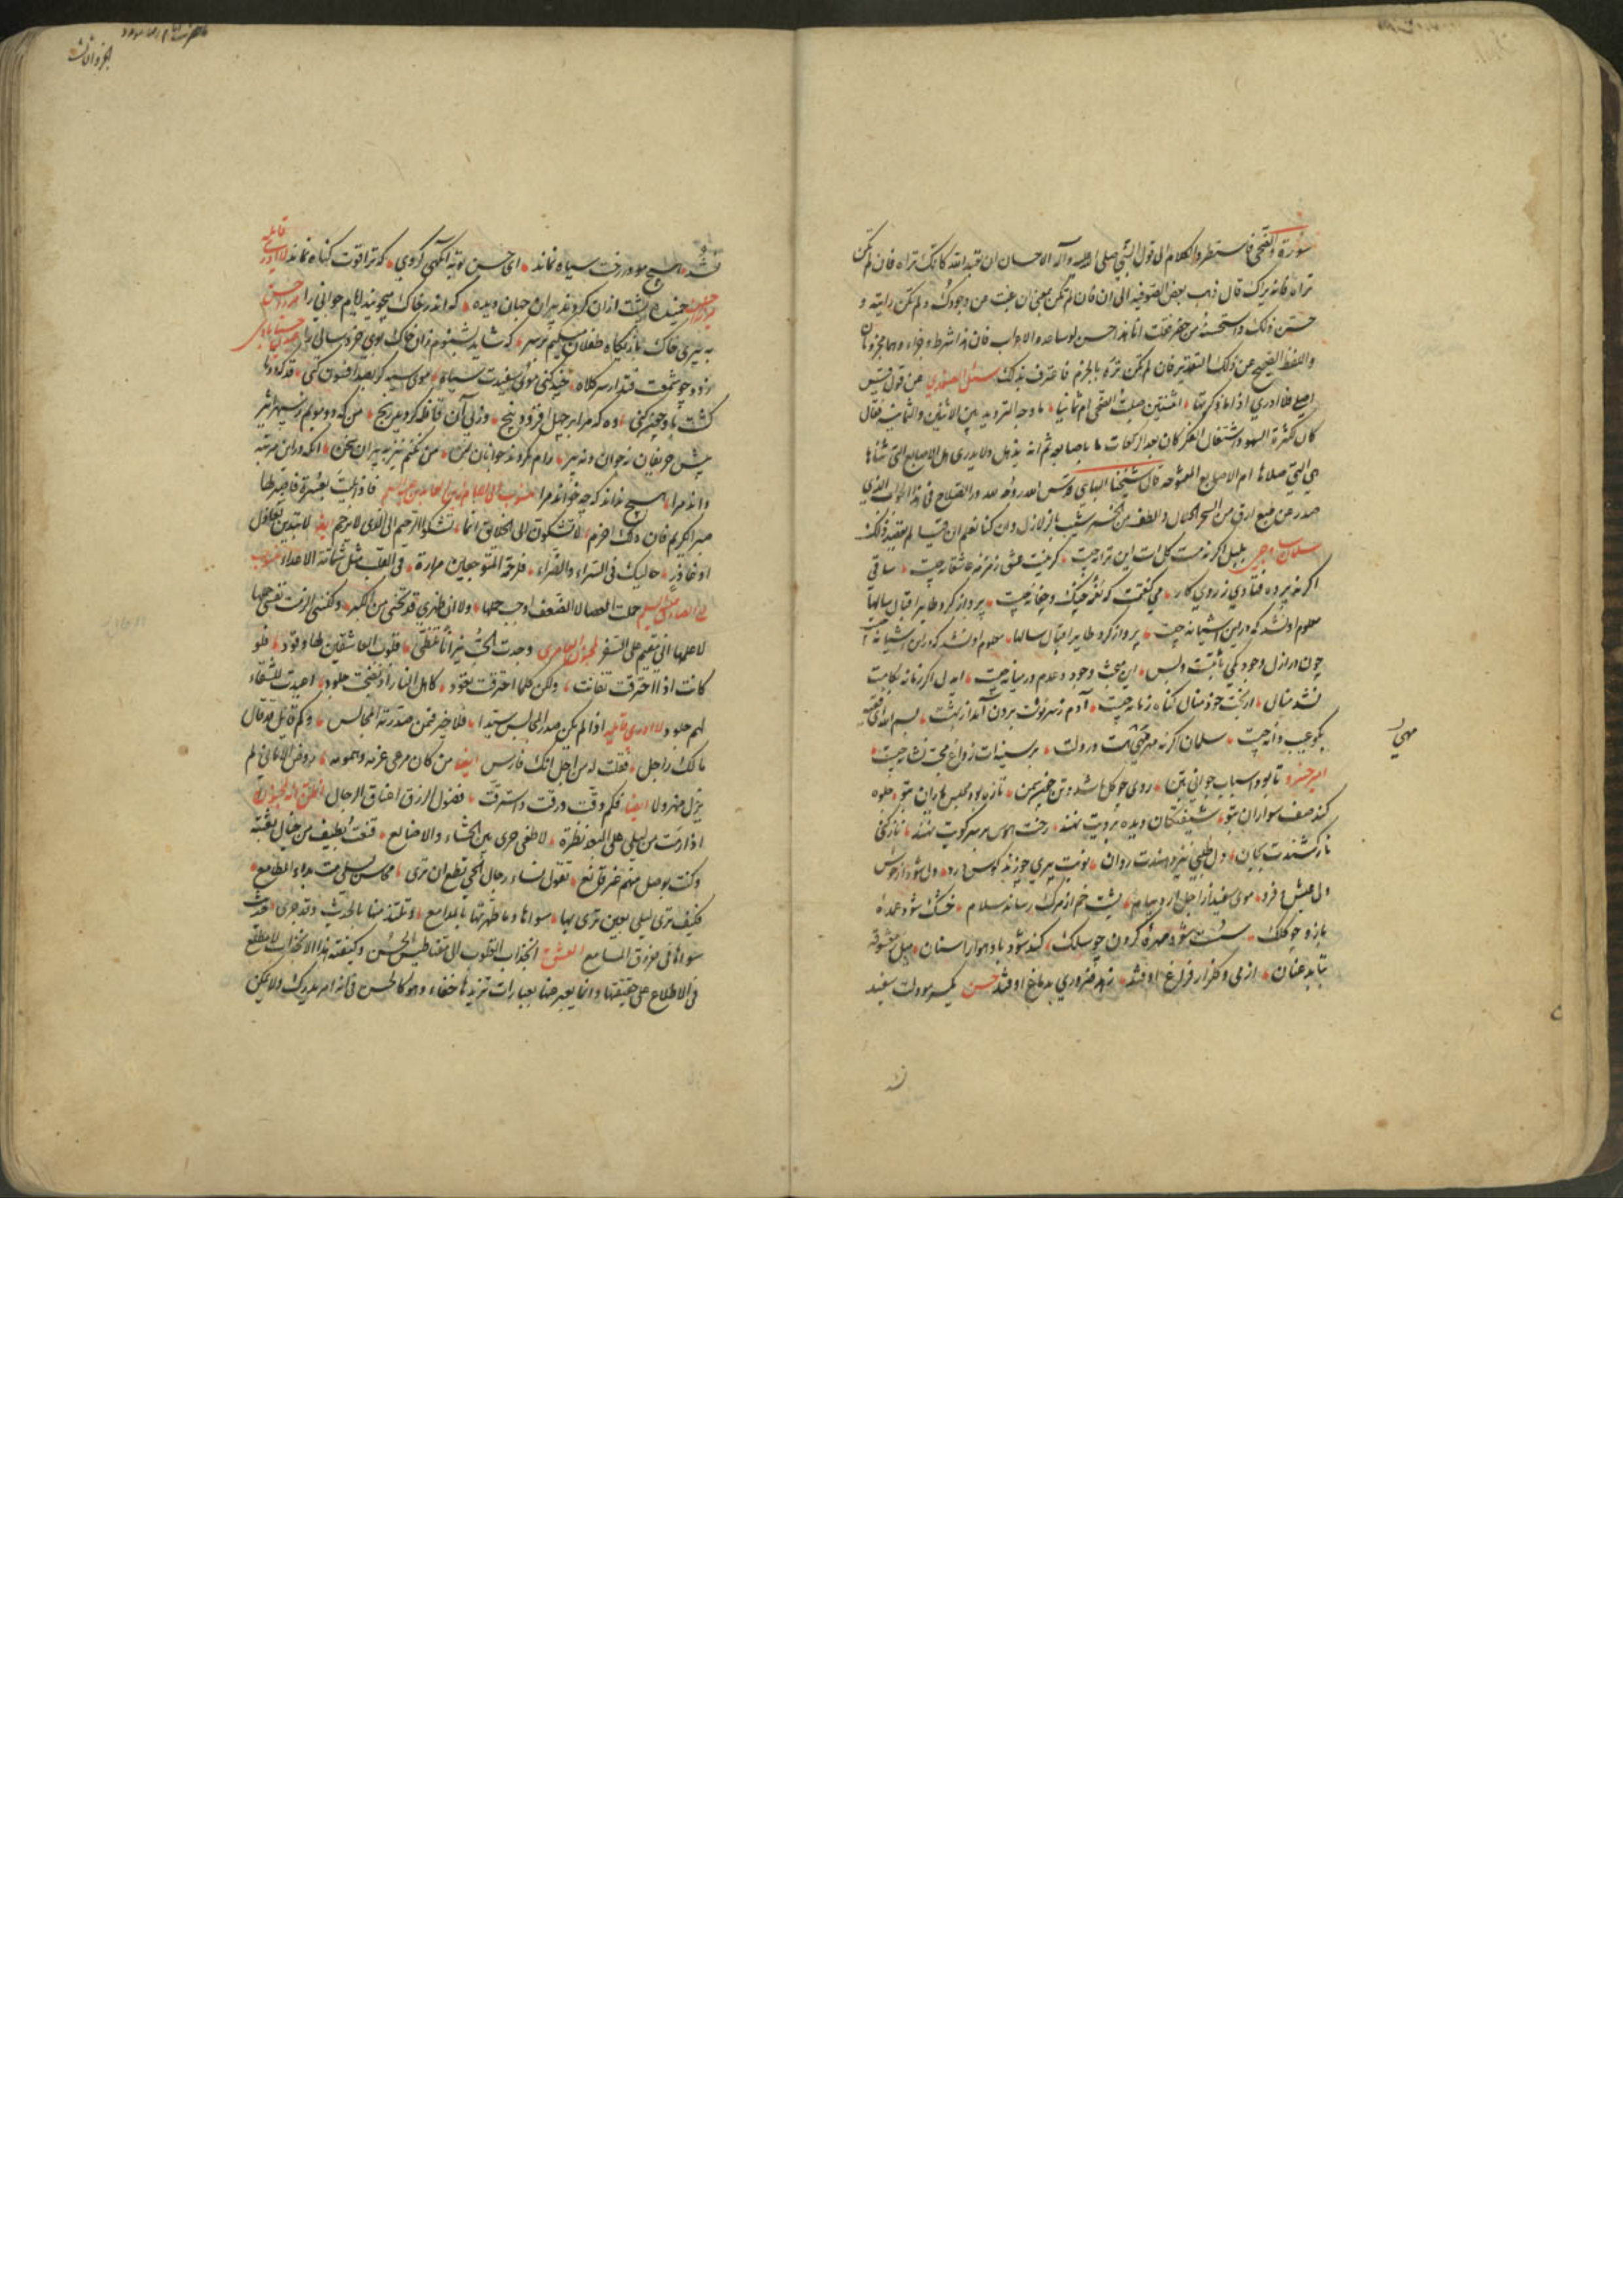 سورة والضحی فاستطرد الکلام الی قول النبی صلی الله علیه وآله الاحسان ان تعبد الله کانک تراه فان لم تکن
تراه فانه یراک قال ذهب بعض الصوفیة الی ان فان لم تکن بمعنی ان غبت عن وجودک ولم تکن رایته و
حسّن ذلک واستحسنه من حضر فقلت انا هذا حسن لو ساعده الاعراب فان هذا شرط وجزاء وهما مجزومان
واللفظ الصحیح عن ذلک التقدیر فان لم تکن تره بالجزم فاعترف بذلک سئل الصفدی عن قول قیس
اصلی فلا ادری اذا ما ذکرتها اثنتین صلیت الضحی ام ثمانیا ما وجه التردید بین الاثنین والثمانیة فقال
کان لکثرة السهو واشتغال الفکر کان یعد الرکعات باصابعه ثم انه یذهل ولا یدری هل الاصابع التی ثناها
هی التی صلاها ام الاصابع المفتوحة قال شیخنا البهائی قدس الله روحه لله در الصلاح فی هذا الجواب الذی
صدر عن طبع ارق من السحر الحلال والطف من الخمر شیب بالزلال وان کنا نعلم ان قیسا لم یقصد ذلک
سلمان ساوجی بلبل اگر نه مست گل است این ترانه چیست گر نیست عشق زمزمه عاشقانه چیست ساقی
اگر نه پرده فتادی ز روی کار می گفتمت که نغمه چنگ و چغانه چیست پرواز کرد طایر اقبال سالها
معلوم او نشد که درین آشیانه چیست پرواز کرد طایر اقبال سالها معلوم او نشد که درین آشیانه چیست
چون در ازل وجود یکی ثابتست و بس این بحث وجود و عدم در میانه چیست ای دل اگر زمانه بکامت
نشد منال از بخت خود منال گناه زمانه چیست آدم ز سرنوشت برون آمد از بهشت بسم الله ای فقیه
بگو عیب دانه چیست سلمان اگر نه مهر بتی هست در دلت بر سینه ات ز داغ محبت نشانه چیست
امیر خسرو تا بود اسباب جوانی بتن روی چو گل باشد و تن چون سمن تازه بود مجلس یاران بتو جلوه
کند صف سواران بتو شیفتگان دیده برویت نهند رخت هوس بر سر کویت نهند ناز کنی
ناز کشندت بجان دل طلبی نیز دهندت روان نوبت پیری چو زند کوس درد دل شود از خوش
دلی عیش فرد موی سفید از اجل آرد پیام پشت خم از مرگ رساند سلام خشک شود عمده
بازو چو کلک سست شود مهره گردن چو سلک کند شود باد هوا را سنان میل معشوقه
بتابد عنان از می و گلزار فراغ اوفتد زهد ضروری بدماغ اوفتد حسن یکسر مو دلت سفید
نشد
مهیّ
نشد هیچ مو در رخت سیاه نماند ای حسن توبه آنگهی کردی که ترا قوت گناه نماند لا ادری قایله
خمیده پشت از آن گردند پیران جهان دیده که اندر خاک میجویند ایام جوانی را
به پیری خاک بازیگاه طفلان میکنم بر سر که شاید بشنوم زان خاک بوی خردسالی را
زود چو شمعت فتد از سر کلاه چند کنی موی سفیدت سیاه موی سیه گر بصد افسون کنی قد که دوتا
گشت باو چون کنی وه که مرا بر چهل افزود پنج وز پی آن قافله گردید رنج من که دو مویم ز سپهر اثیر
پیش حریفان نه جوان و نه پیر رام نگردند جوانان بمن من نکنم نیز به پیران سخن آنکه در این مرتبه
داند مرا هیچ نداند که چه خواند مرا منسوب الی الامام زین العابدین علیه السلام فاذا بلیت بعسرة فاصبر لها
صبر الکریم فان ذلک احزم لا تشکون الی الخلائق انما تشکو الرحیم الی الذی لا یرحم ایضا لا تبدین لعاذل
او عاذر حالیک فی السراء والضراء فلرحمة المتوجعین مرارة فی القلب مثل شماتة الاعداء منسوب
حملت العصا لا الضعف اوجب حملها ولا انی ظهری قد تحنی من الکبر ولکننی الزمت نفسی حملها
لاعلمها انی مقیم علی السفر لمجنون العامری وجدت الحب نیرانا تلظی قلوب العاشقین لها وقود فلو
کانت اذا احترقت تفانت ولکن کلما احترقت تعود کاهل النار اذ نضجت جلود اعیدت للشقاء
لهم جلود لا ادری قایله اذا لم یکن صدر المجالس سیدا فلا خیر فیمن صدرته المجالس وکم قائل قد قال
ما لک راجل فقلت له من اجل انک فارس ایضا من کان مرعی عزمه وهمومه روض الامانی لم
یزل مهزولا ایضا فکم دقت ورقت واسترقت فضول الرزق اعناق الرجال اظن انه لمجنون
اذا رمت من لیلی علی البعد نظرة لاطفی جوی بین الحشاء والاضالع
وکنت بوصل منهم غیر قانع تقول نساء رجال الحی تطمع ان تری محاسن لیلی مت بداء المطامع
فکیف تری لیلی بعین تری بها سواها وما طهرتها بالمدامع وتلتذ منها بالحدیث وقد جری حدیث
سواها فی خروق المسامع العشق انجذاب القلوب الی مغناطیس الحسن وکیفیة هذا الانجذاب لا مطمع
فی الاطلاع علی حقیقتها وانما یعبر عنها بعبارات تزیدها خفاء وهو کالحسن فی انه امر یدرک ولا یمکن